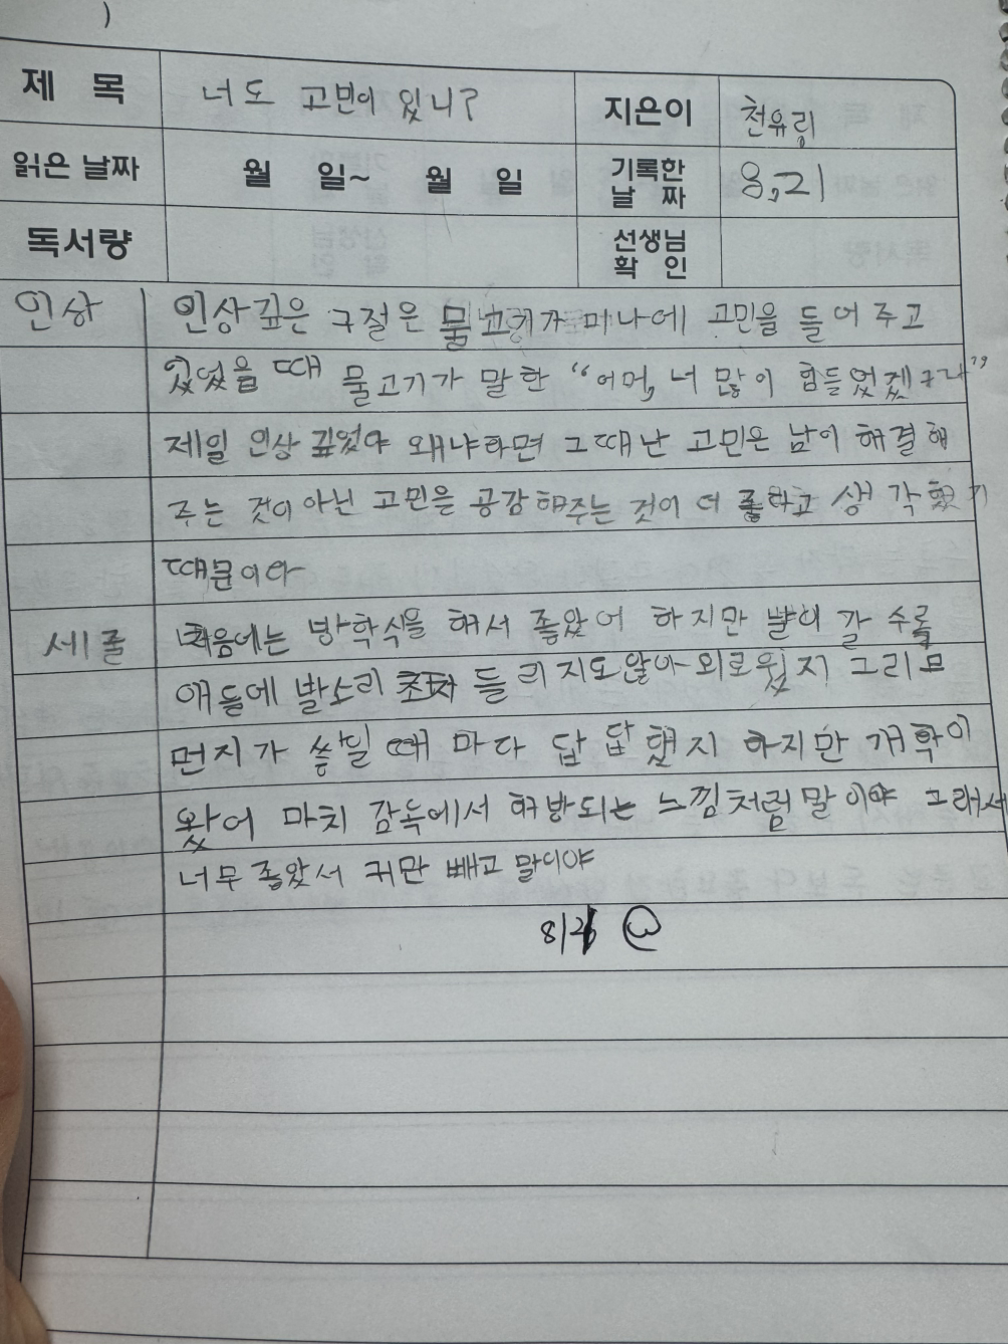 제 목 너도 고민이 있니? 지은이 천유림
읽은 날짜 월 일~ 월 일 기록한 날 짜 8,21
독서량 선생님 확 인
인상 인상깊은 구절은 물고기가 미나에 고민을 들어 주고
있었을 때 물고기가 말한 “어머, 너 많이 힘들었겠구나”
제일 인상 깊었야 왜냐하면 그때 난 고민은 남이 해결해
주는 것이 아닌 고민을 공감해주는 것이 더 좋다고 생각했기
때문이라
세줄 처음에는 방학식을 해서 좋았어 하지만 날이 갈 수록
애들에 발소리 조차 들리지도않아 외로웠지 그리고
먼지가 쌓일 때 마다 답답했지 하지만 개학이
왔어 마치 감옥에서 해방되는 느낌처럼말이야 그래서
너무 좋았서 귀만 빼고 말이야
8/26